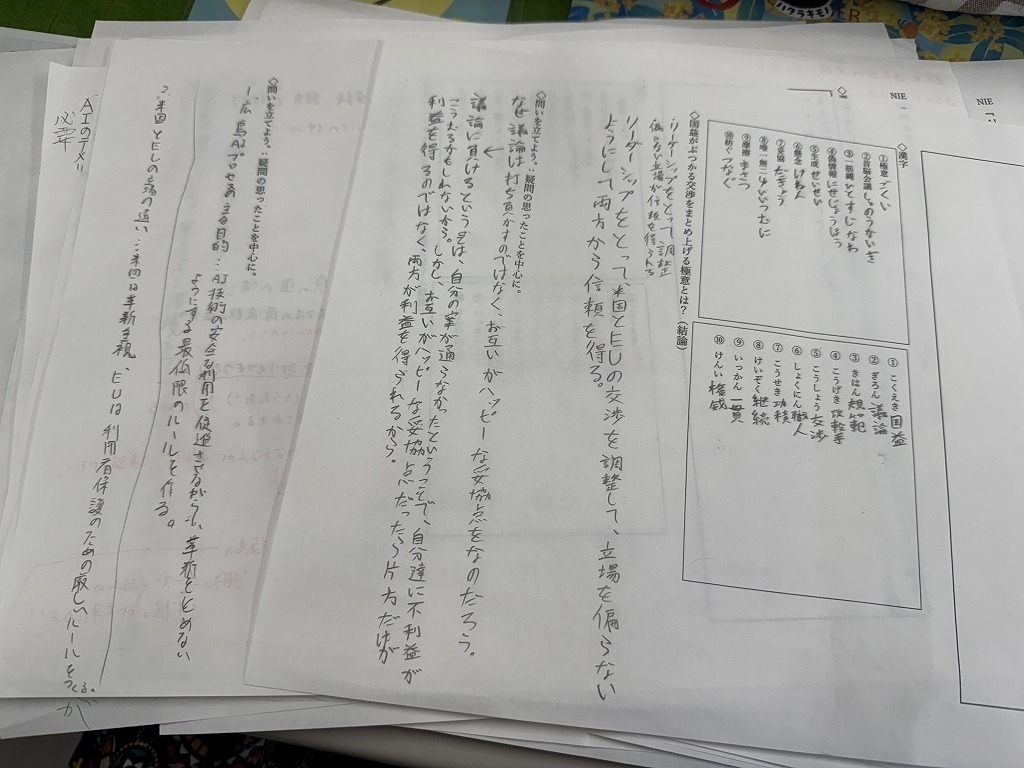 NIE
NIE
◇漢字
①極意 ごくい
②首脳会議 しゅのうかいぎ
③一筋縄 いとすじなわ
④偽情報 にせじょうほう
⑤生成 せいせい
⑥懸念 けねん
⑦妥協 だきょう
⑧唯一無二
⑨摩擦 まさつ
⑩紡ぐ つなぐ
① こくえき 国益
② ぎろん 議論
③ きはん 規範
④ こうげき 攻撃
⑤ こうしょう 交渉
⑥ しょくにん 職人
⑦ こうせき 功積
⑧ けいぞく 継続
⑨ いっかん 一貫
けんい 権威
◇国益がぶつかる交渉をまとめ上げる極意とは?(結論)
リーダーシップをとって、調整
偏らない立場が信頼を得られる
リーダーシップをとって米国とEUの交渉を調整して、立場を偏らない
ようにして両方から信頼を得る。
◇問いを立てよう。:疑問の思ったことを中心に。
なぜ議論は打ち負かすのではなく、お互いがハッピーな妥協点をなのだろう。
議論に負けるということは、自分の案が通らなかったということで、自分達に不利益が
こうむるかもしれないから。しかし、お互いがハッピーな妥協点だったら片方だけが
利益を得るのではなく、両方が利益を得られるから。
◇問いを立てよう。:疑問の思ったことを中心に。
1. 広島AIプロセスの主な目的…AI技術の安全な利用を促進させながらも、革新をとめない
ようにする最低限のルールを作る。
2. 米国とEUの場の違い…米国は革新重視、EUは利用者保護のための厳しいルールをつくる。
AIのデメリ
必要
が